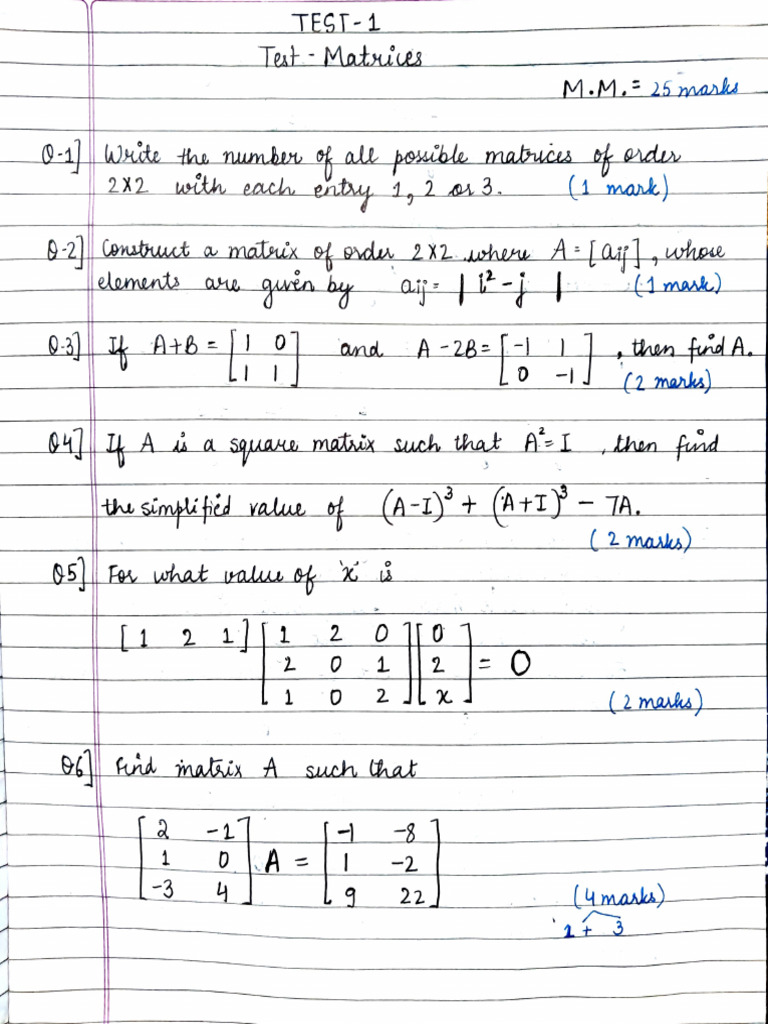 TEST-1
Test - Matrices
M.M. = 25 marks
Q-1] Write the number of all possible matrices of order
2×2 with each entry 1, 2 or 3. (1 mark)
Q-2] Construct a matrix of order 2×2 where A = [aij], whose
elements are given by aij = | i² - j | (1 mark)
Q-3] If A+B = [1 0; 1 1] and A - 2B = [-1 1; 0 -1], then find A.
(2 marks)
Q4] If A is a square matrix such that A² = I, then find
the simplified value of (A-I)³ + (A+I)³ - 7A.
(2 marks)
Q5] For what value of 'x' is
[1 2 1] [1 2 0; 2 0 1; 1 0 2] [0; 2; x] = 0
(2 marks)
Q6] Find matrix A such that
[2 -1; 1 0; -3 4] A = [-1 -8; 1 -2; 9 22]
(4 marks)
1 + 3